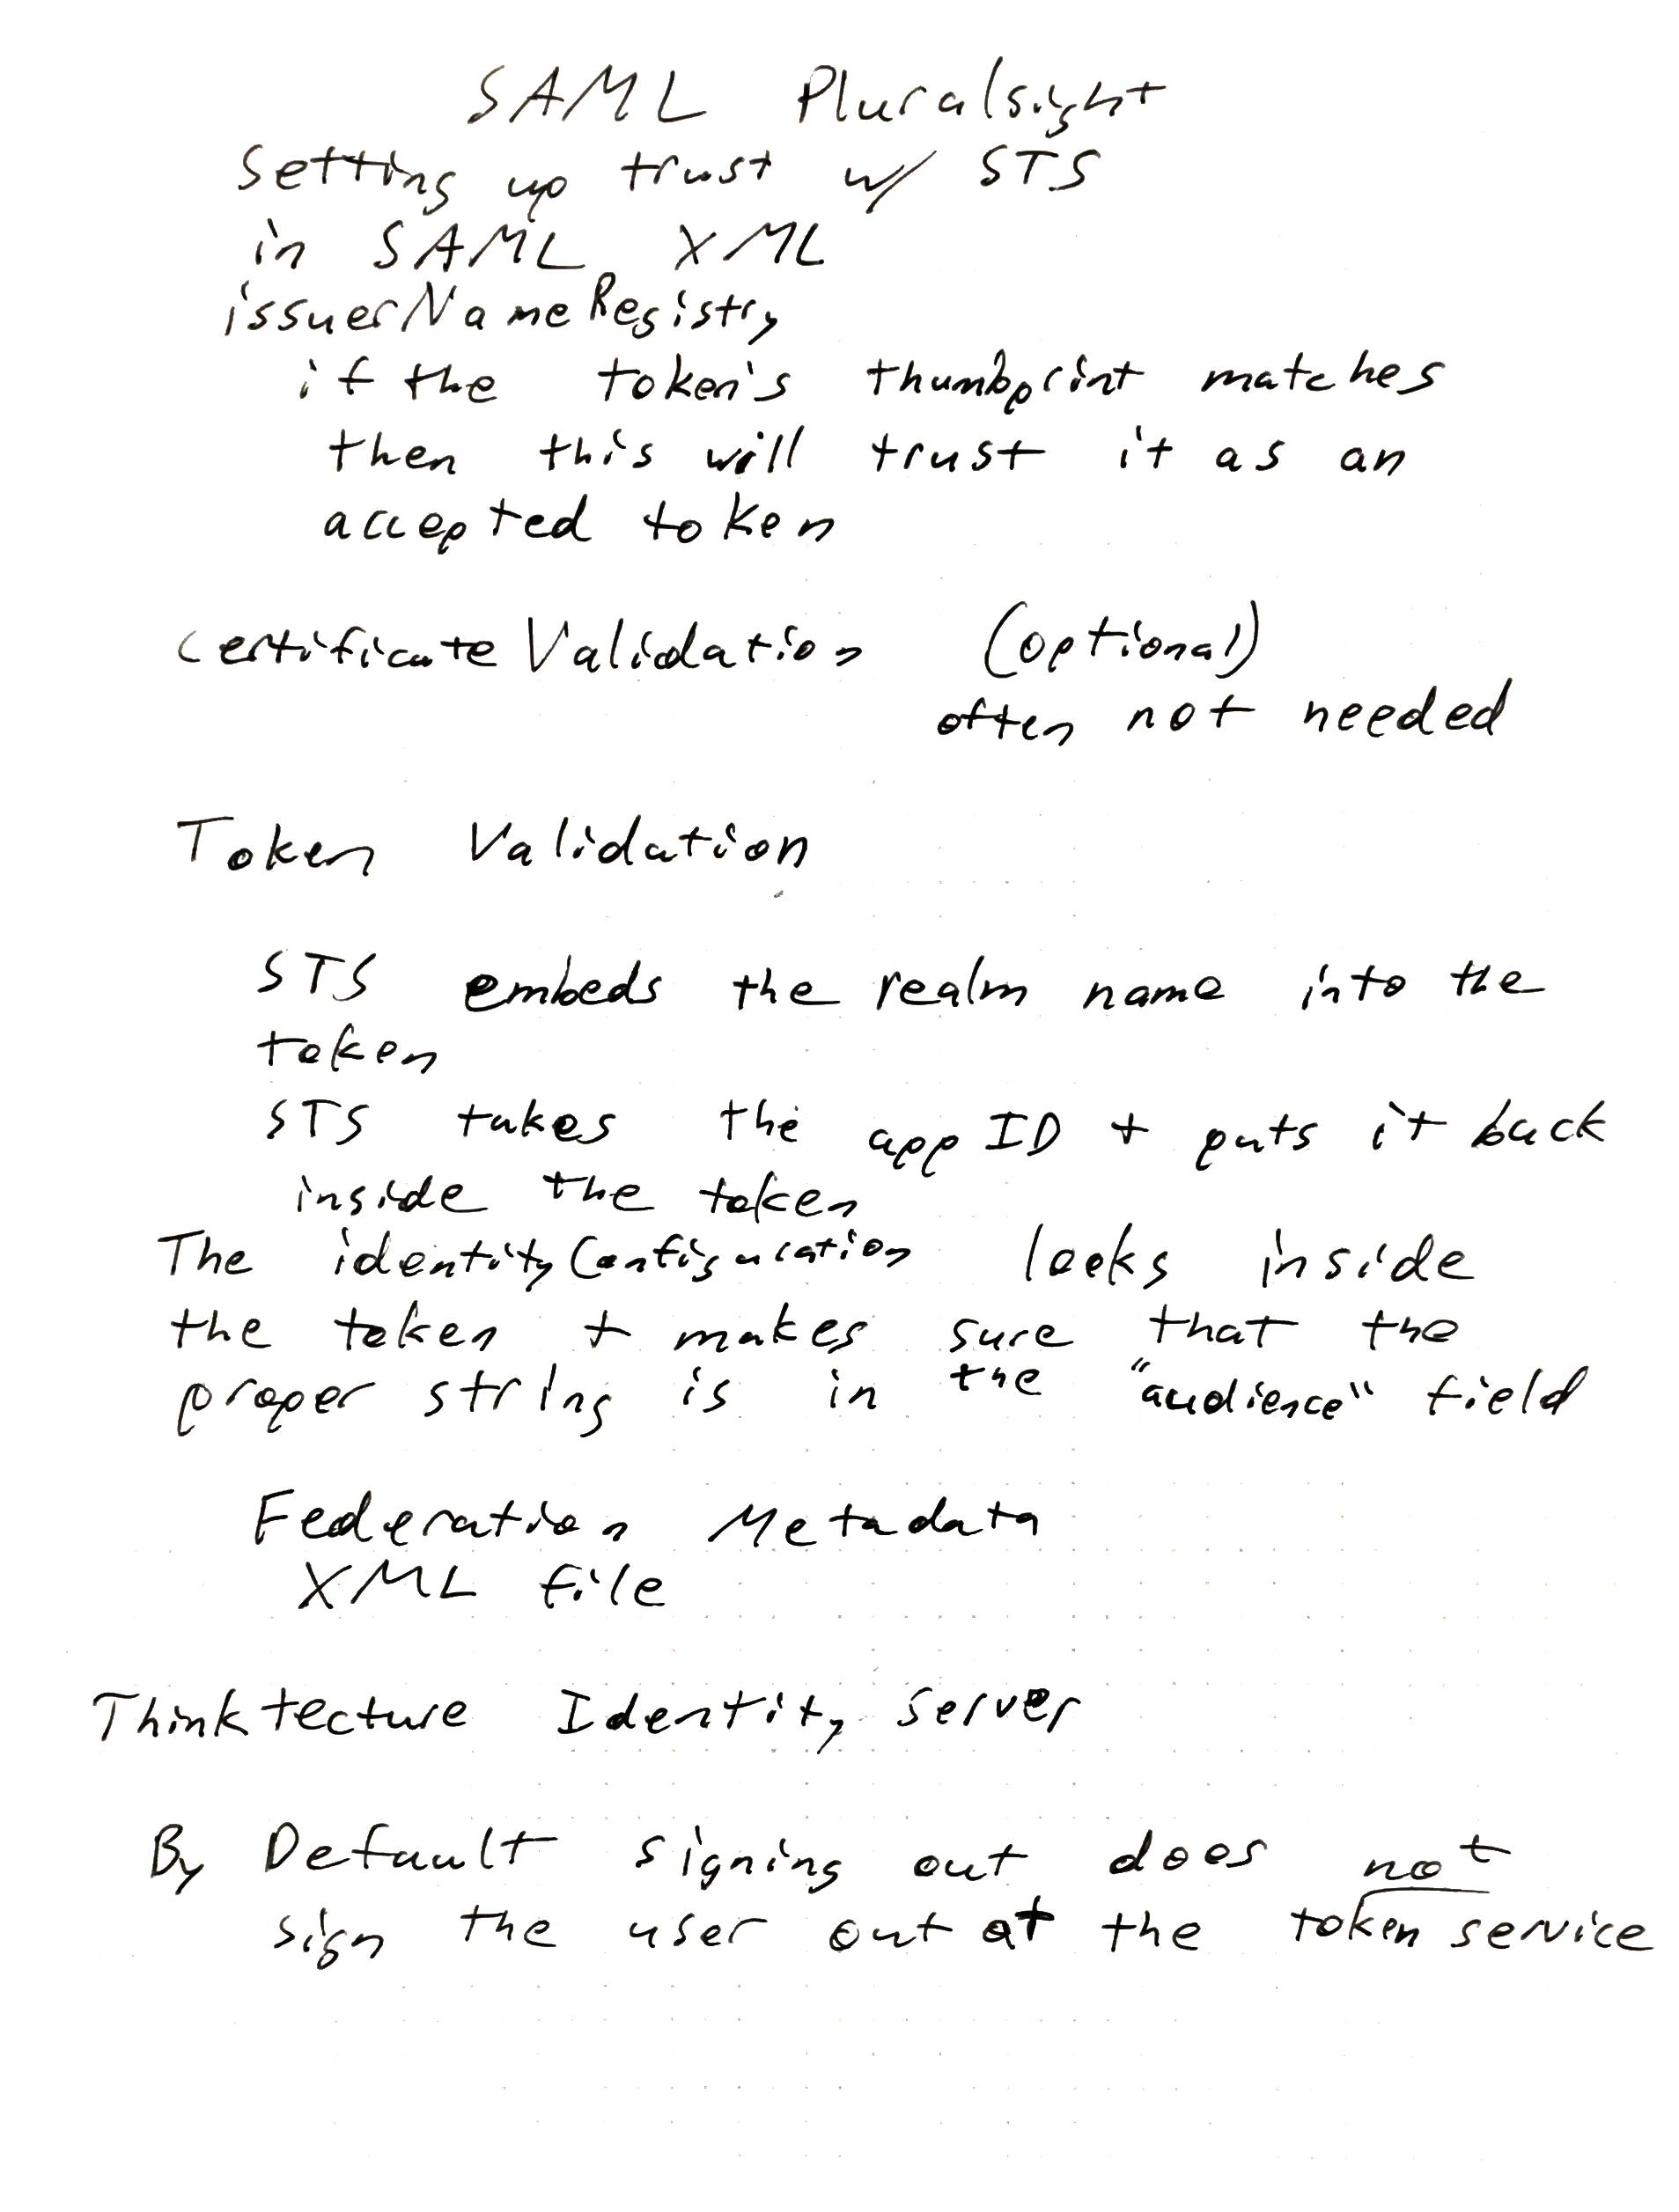 SAML Pluralsight
Setting up trust w/ STS
in SAML XML
issuerNameRegistry
if the token's thumbprint matches
then this will trust it as an
accepted token
certificateValidation (optional)
often not needed
Token Validation
STS embeds the realm name into the
token
STS takes the app ID + puts it back
inside the token
The identityConfiguration looks inside
the token + makes sure that the
proper string is in the "audience" field
Federation Metadata
XML file
Thinktecture Identity server
By Default signing out does not
sign the user out at the token service